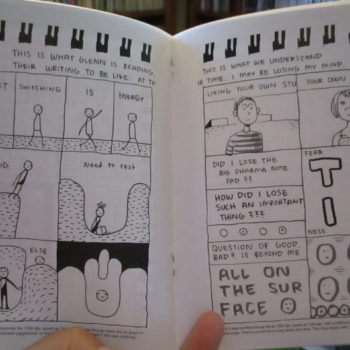 THIS IS WHAT GLENN IS READING
THEIR WRITING TO BE LIKE: AT TH
SWITCHING
IS
ENERGY
Need to rest
ELSE
THIS IS WHAT WE UNDERSTAND
IE TIME. I MAY BE LOSING MY MIND.
LIKING YOUR OWN STU
YOUR OWN
DID I LOSE THE
BIG DHARMA NOTE
PAD ??
HOW DID I LOSE
SUCH AN IMPORTANT
THING ???
FEAR
T
I
NESS
QUESTION OF GOOD,
BAD ? IS BEYOND ME
ALL ON
THE SUR
FACE